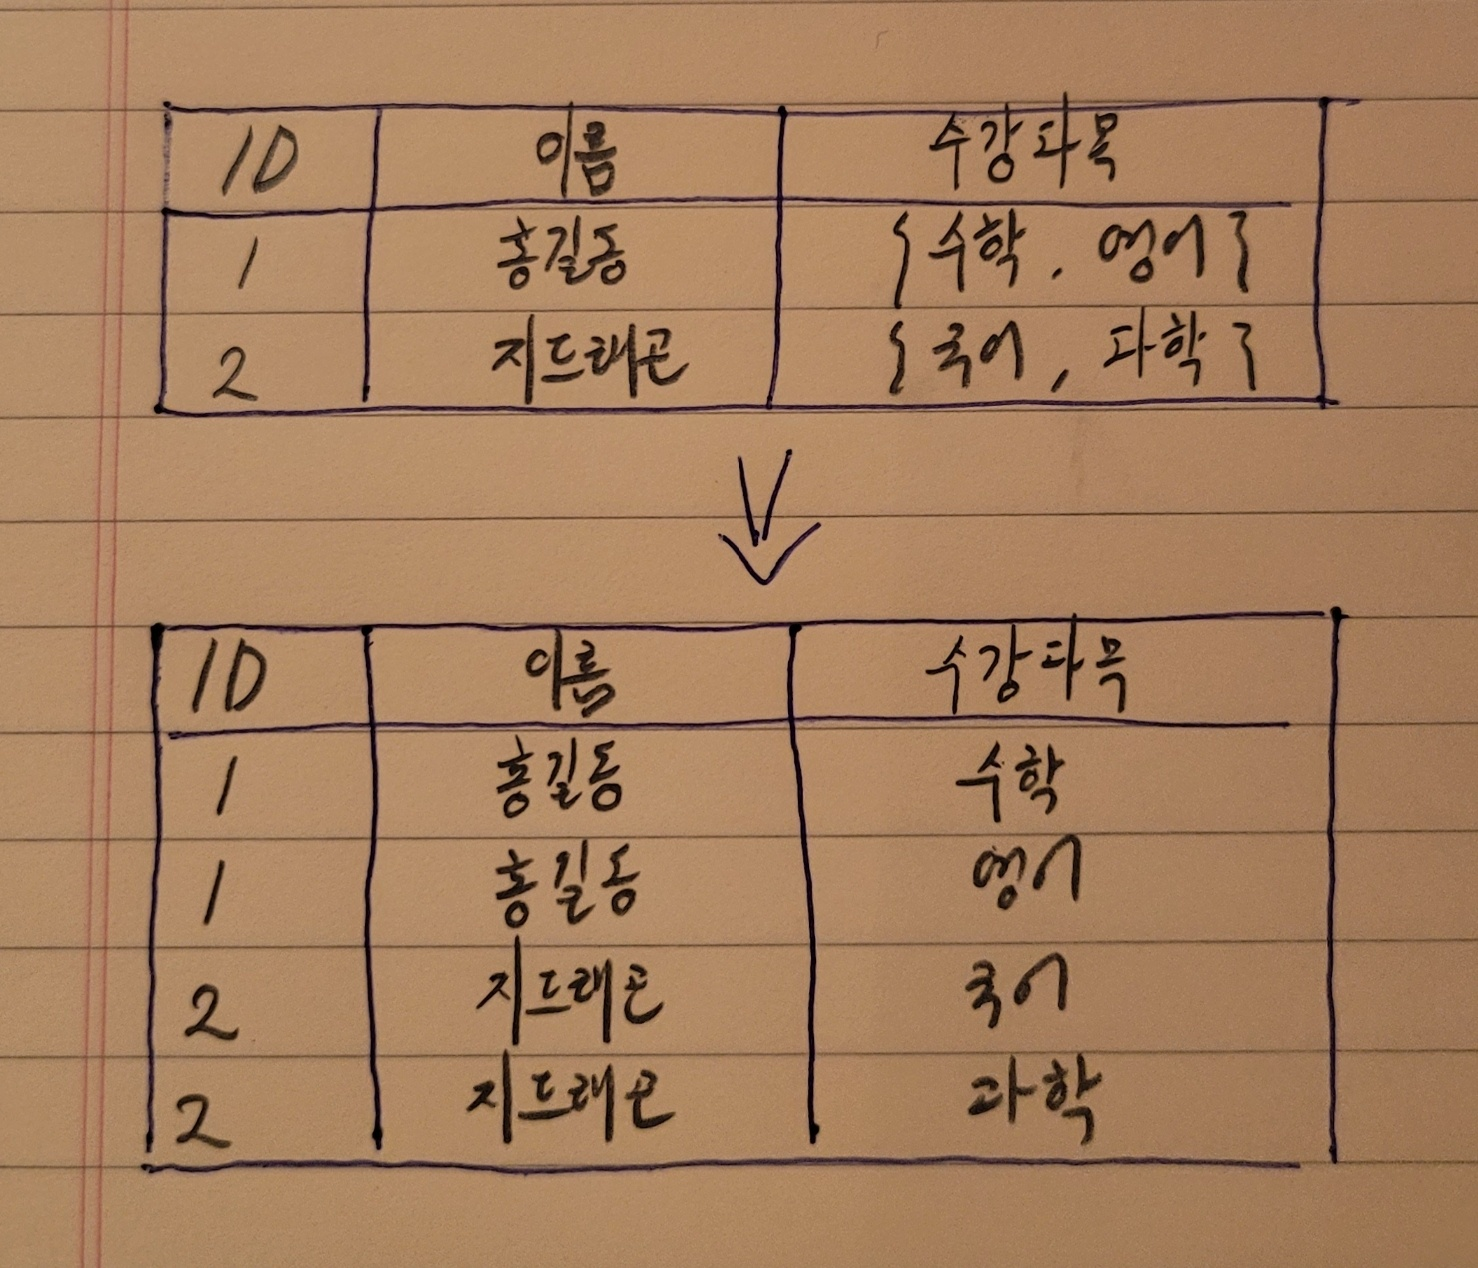 ID 이름 수강과목
1 홍길동 {수학, 영어}
2 지드래곤 {국어, 과학}
ID 이름 수강과목
1 홍길동 수학
1 홍길동 영어
2 지드래곤 국어
2 지드래곤 과학